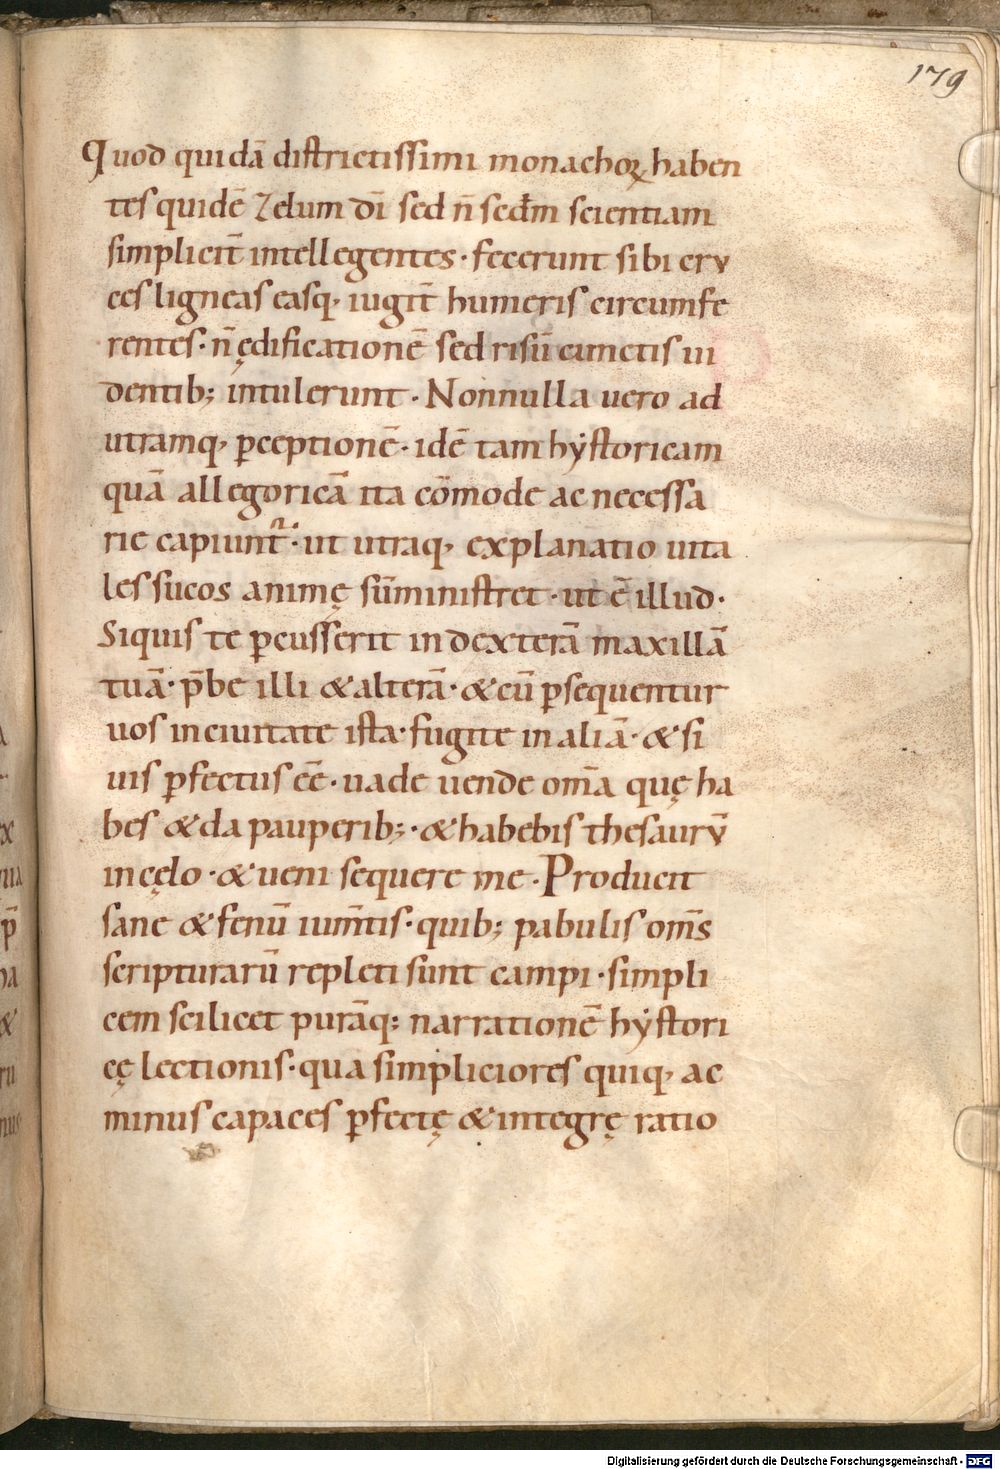 179
Quod quidā districtissimi monachoꝝ haben
tes quidē zelum dī sed n̄ scđm scientiam
simplicit̄ intellegentes · fecerunt sibi cru
ces ligneas easq, iugit̄ humeris circumfe
rentes · n̄ ędificationē sed risū cunctis ui
dentib; intulerunt · Nonnulla uero ad
utramq, ꝑceptionē · idē tam hẏstoricam
quā allegoricā ita cōmode ac necessa
rie capiunt᷑ · ut utraq, explanatio uita
les sucos animę sūministret · ut ē illud ·
Siquis te ꝑcusserit in dexterā maxillā
tuā · p̄be illi & alterā · & cū ꝑsequentur
uos in ciuitate ista · fugite in aliā · & si
uis ꝑfectus eē · uade uende om̄a quę ha
bes & da pauperib; · & habebis thesaurū
in cęlo · & ueni sequere me · Producit
sane & fenū ium̄tis · quib; pabulis om̄s
scripturarū repleti sunt campi · simpli
cem scilicet purāq; narrationē hẏstori
cę lectionis · qua simpliciores quiq, ac
minus capaces ꝑfectę & integrę ratio
Digitalisierung gefördert durch die Deutsche Forschungsgemeinschaft - DFG